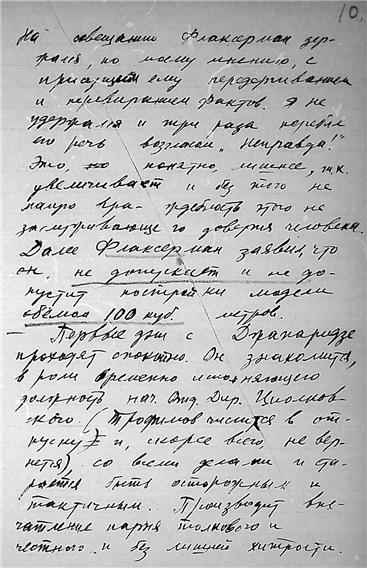 10.
На совещании Флаксерман дер-
жался, по моему мнению, с
присущим ему передергиванием
и перевиранием фактов. Я не
удержался и три раза перебил
его речь возгласом „Неправда!"
Это, понятно, лишнее, т.к.
увеличивает и без того не
малую враждебность этого не
заслуживающего доверия человека.
Далее Флаксерман заявил, что
он не допускает и не до-
пустит постройки модели
объемом 100 куб. метров.
— Первые дни с Джапаридзе
проходят спокойно. Он знакомится,
в роли временно исполняющего
должность нач. Диэ Циолков-
ского. (Трофимов числится в от-
пуску и, скорее всего, не вер-
нется), со всеми делами и ста-
рается быть осторожным и
тактичным. Производит впе-
чатление парня толкового и
честного и без лишней хитрости.